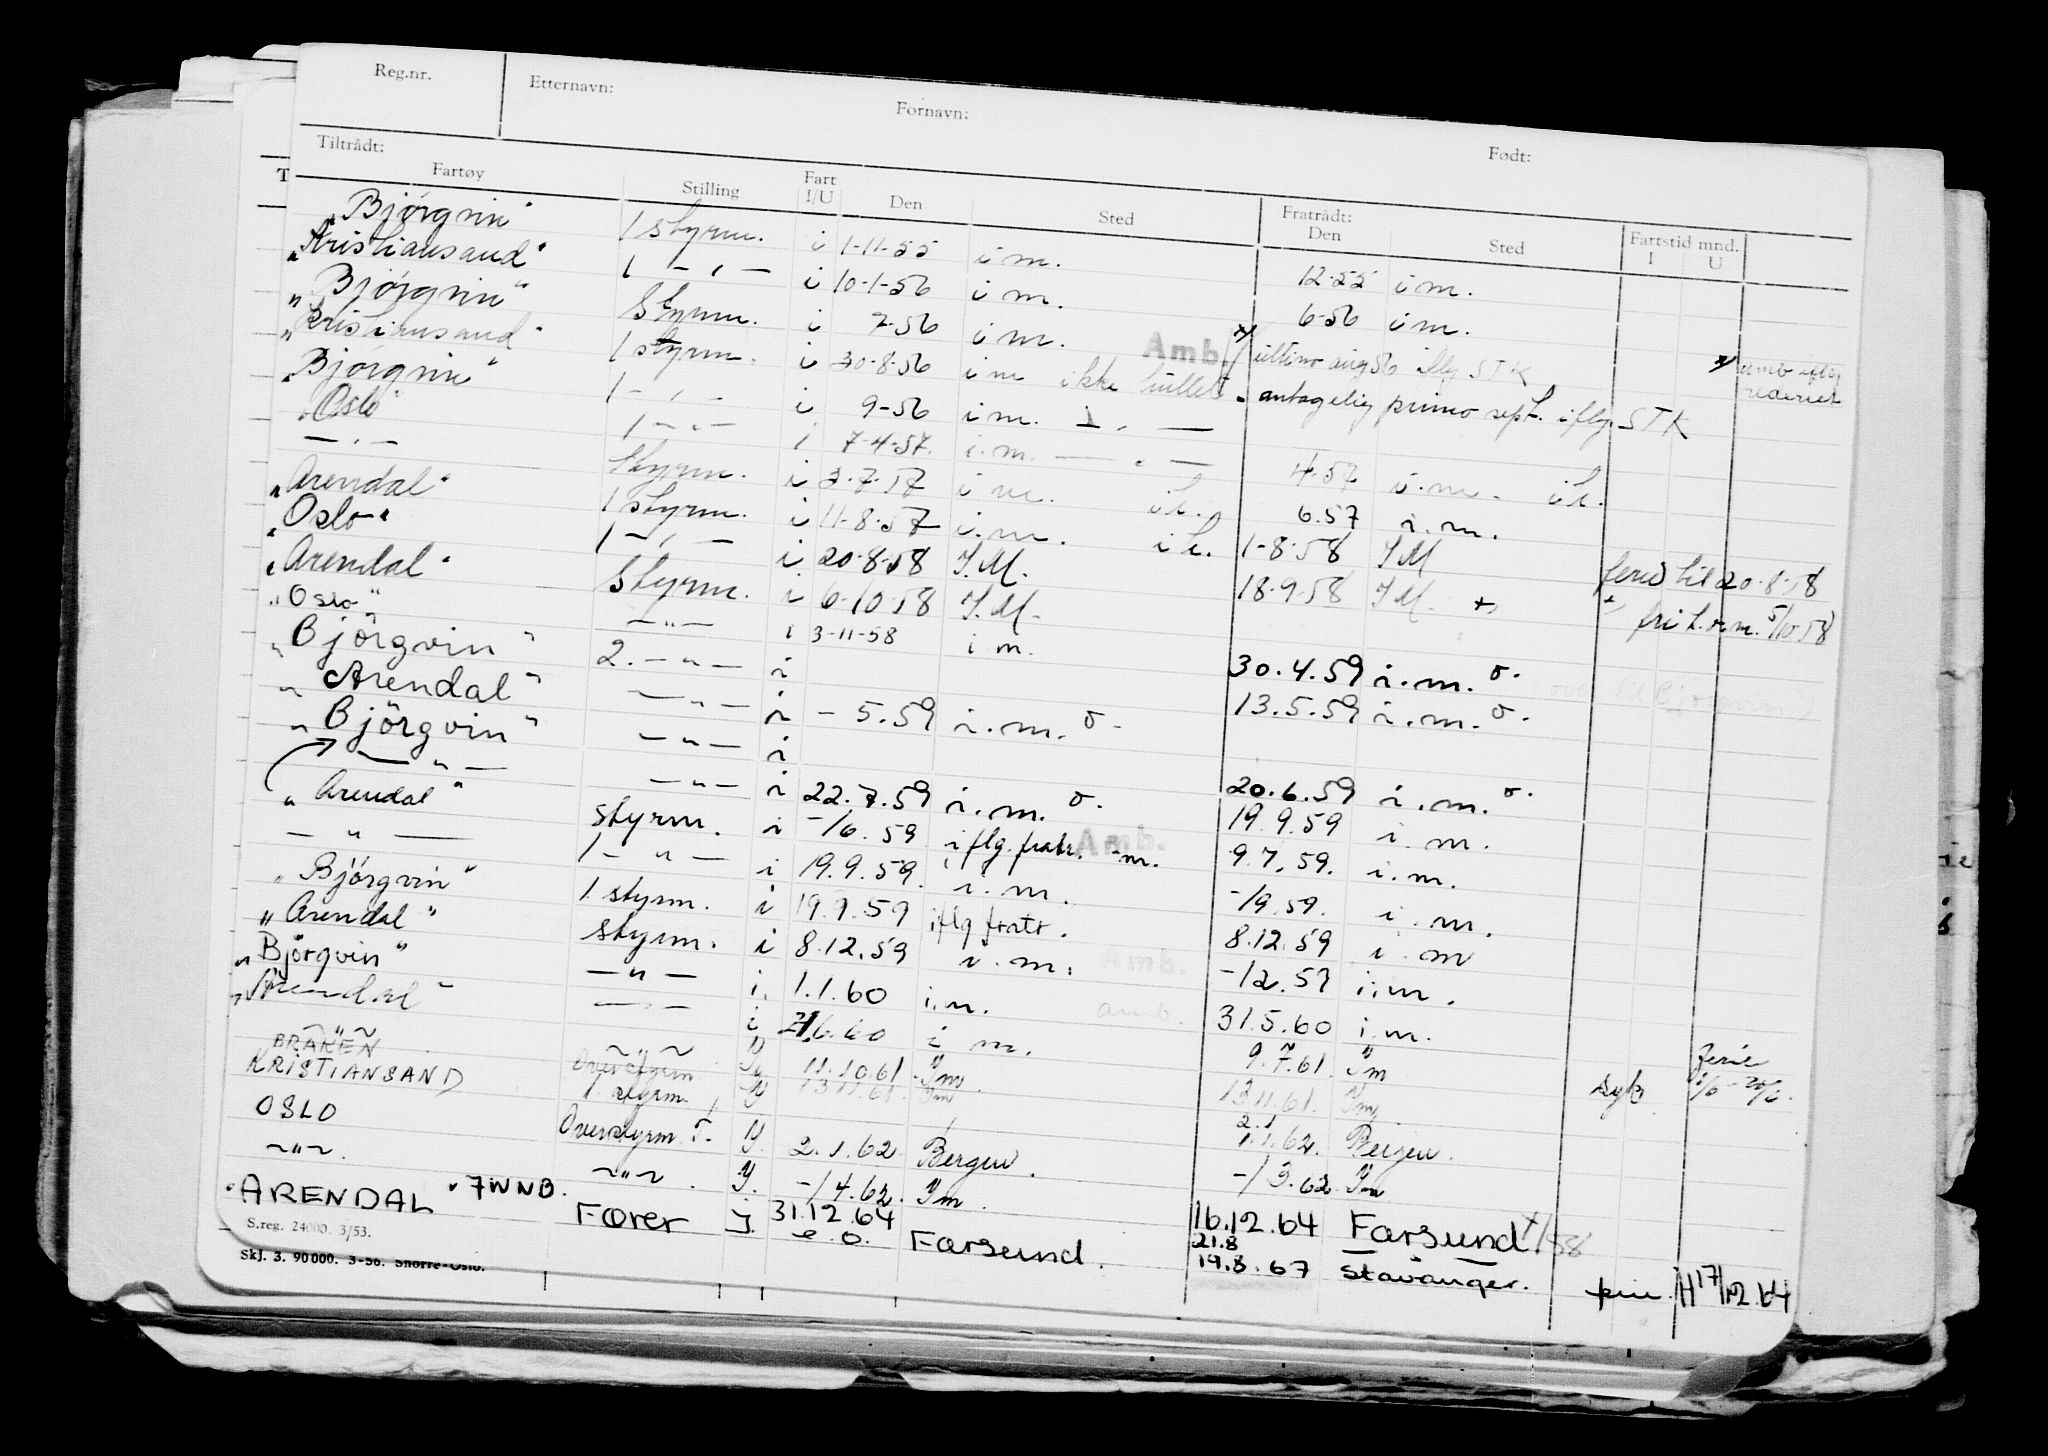 Reg.nr. Etternavn: Fornavn: Født:
Tiltrådt: Fratrådt: Fartstid mnd.
Fartøy Stilling Fart I/U Den Sted Den Sted I U
"Björgvin" 1 styrm. i 1-11-55 i m. 12-55 i m.
"Kristiansand" 1 — " — i 10-1-56 i m. 6-56 i m.
"Björgvin" Styrm. i 7-56 i m. Amb. x/ ultimo aug 56 iflg STK x/ amb iflg rederiet
"Kristiansand" 1 styrm. i 30-8-56 i m ikke antagelig primo sept. iflg. STK
"Björgvin" 1 — " — i 9-56 i m. — " —
"Oslo" 1 — " — i 7-4-57. i.m. — " — 4.57 i.m.
— " — Styrm. i 3-7-57 i m. 6.57 i.m.
"Arendal" 1 styrm. i 11-8-57 i.m. 1-8-58 I.M ferie til 20-8-58
"Oslo" 1 — " — i 20-8-58 I.M. 18-9-58 I.M. fri 5/10 58
"Arendal" Styrm. i 6-10-58 I.M.
"Oslo" — " — i 3-11-58 i m. 30.4.59 i.m. o.
"Björgvin" 2. — " — i 13.5.59 i.m. o.
"Arendal" — " — i - 5.59 i.m. o.
"Björgvin" — " — i 20.6.59 i.m. o.
— " — — " — i 22.7.59 i.m. o. 19.9.59 i.m.
"Arendal" styrm. i -/6.59 iflg. fratr. Amb. m. 9.7.59. i.m.
— " — 1 — " — i 19.9.59. i.m. -/9.59. i.m.
"Björgvin" 1 styrm. i 19.9.59 iflg fratr. 8.12.59 i.m
"Arendal" styrm. i 8.12.59 i.m. Amb. -12.59 i.m.
"Björgvin" — " — i. 1.1.60 i.m. amb. 31.5.60 i.m.
"Arendal" — " — i 6.60 i m. 9.7.61. Ferie
~ " ~ ~ " ~ 11.10.61 Im 13.11.61. Im syk
BRAKEN Overstyrm 13.11.61. Im
KRISTIANSAND 1 styrm. 2.1.62 Bergen. 1.1.62. Bergen.
OSLO Overstyrm. -/4.62. Im. -/3.62 Im
~ " ~. ~ " ~. 31.12.64 16.12.64 Farsund
"ARENDAL" 7WNB. Fører J. e.o. Farsund. 21.8 19.8.67 Stavanger. H 17/12.64
S.reg. 24000. 3/53.
Skj. 3. 90000. 3-56. Snorre-Oslo.